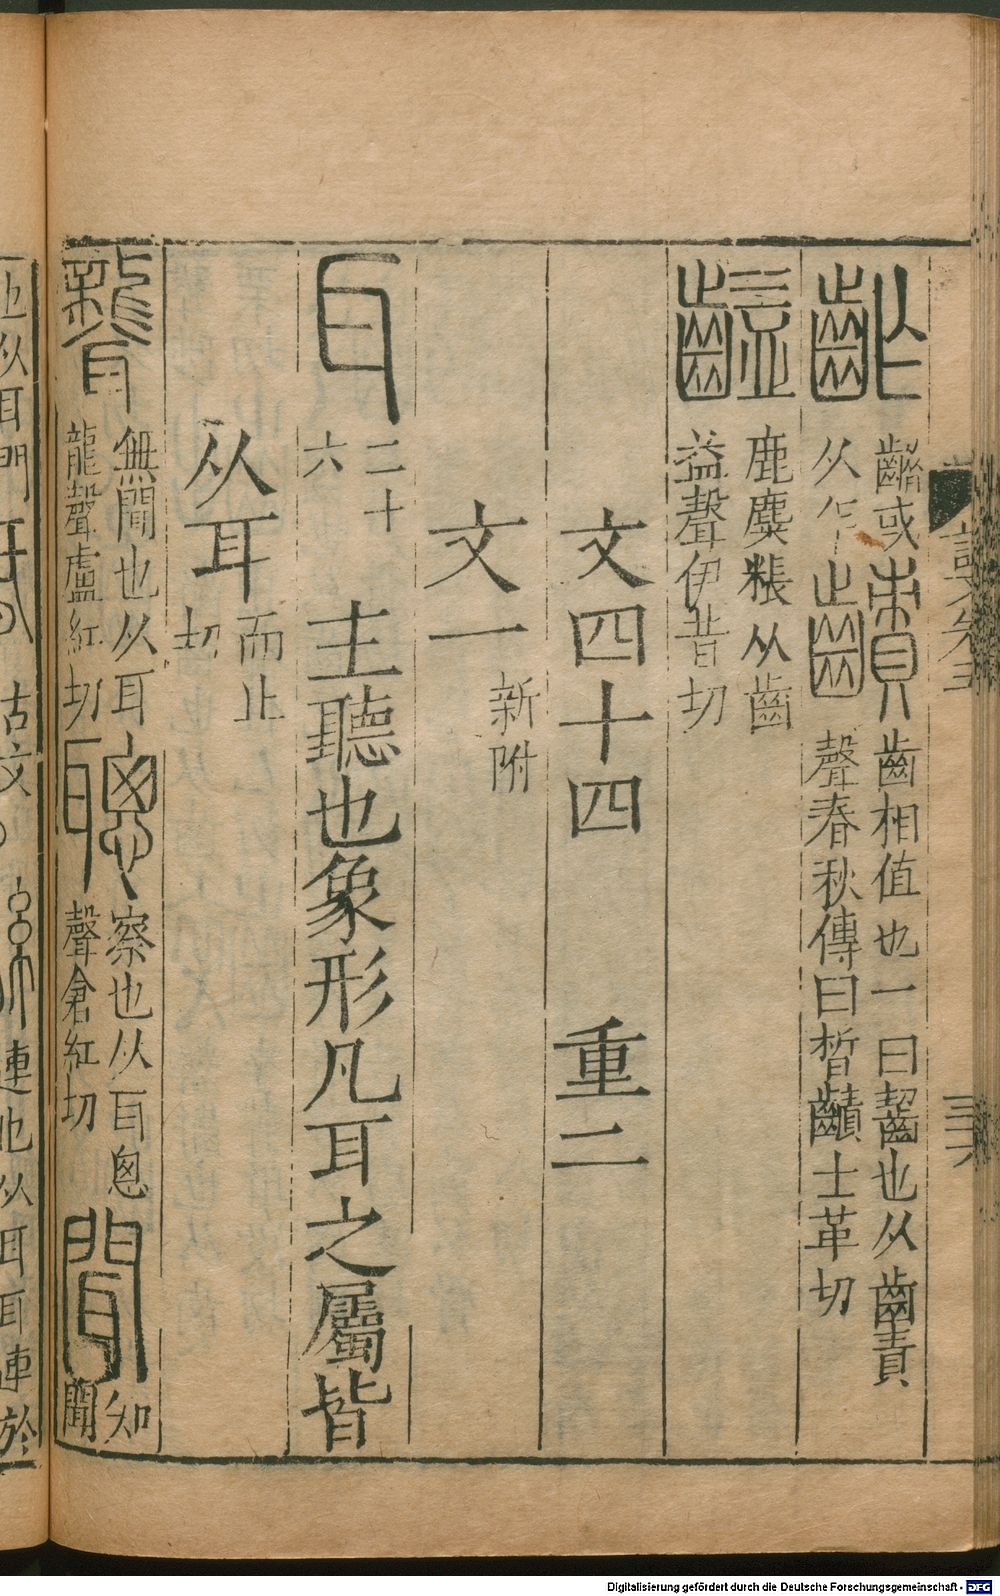 齚 齰或从乍 齰 齒相值也一曰齧也从齒責聲春秋傳曰晳齰士革切
齸 鹿麋粻从齒益聲伊昔切
文四十四 重二
文一 新附
耳 二十六 主聽也象形凡耳之屬皆
从耳 而止切
聾 無聞也从耳龍聲盧紅切 聰 察也从耳悤聲倉紅切 聞 知聞
古文
連也从耳耳連於
Digitalisierung gefördert durch die Deutsche Forschungsgemeinschaft - DFG